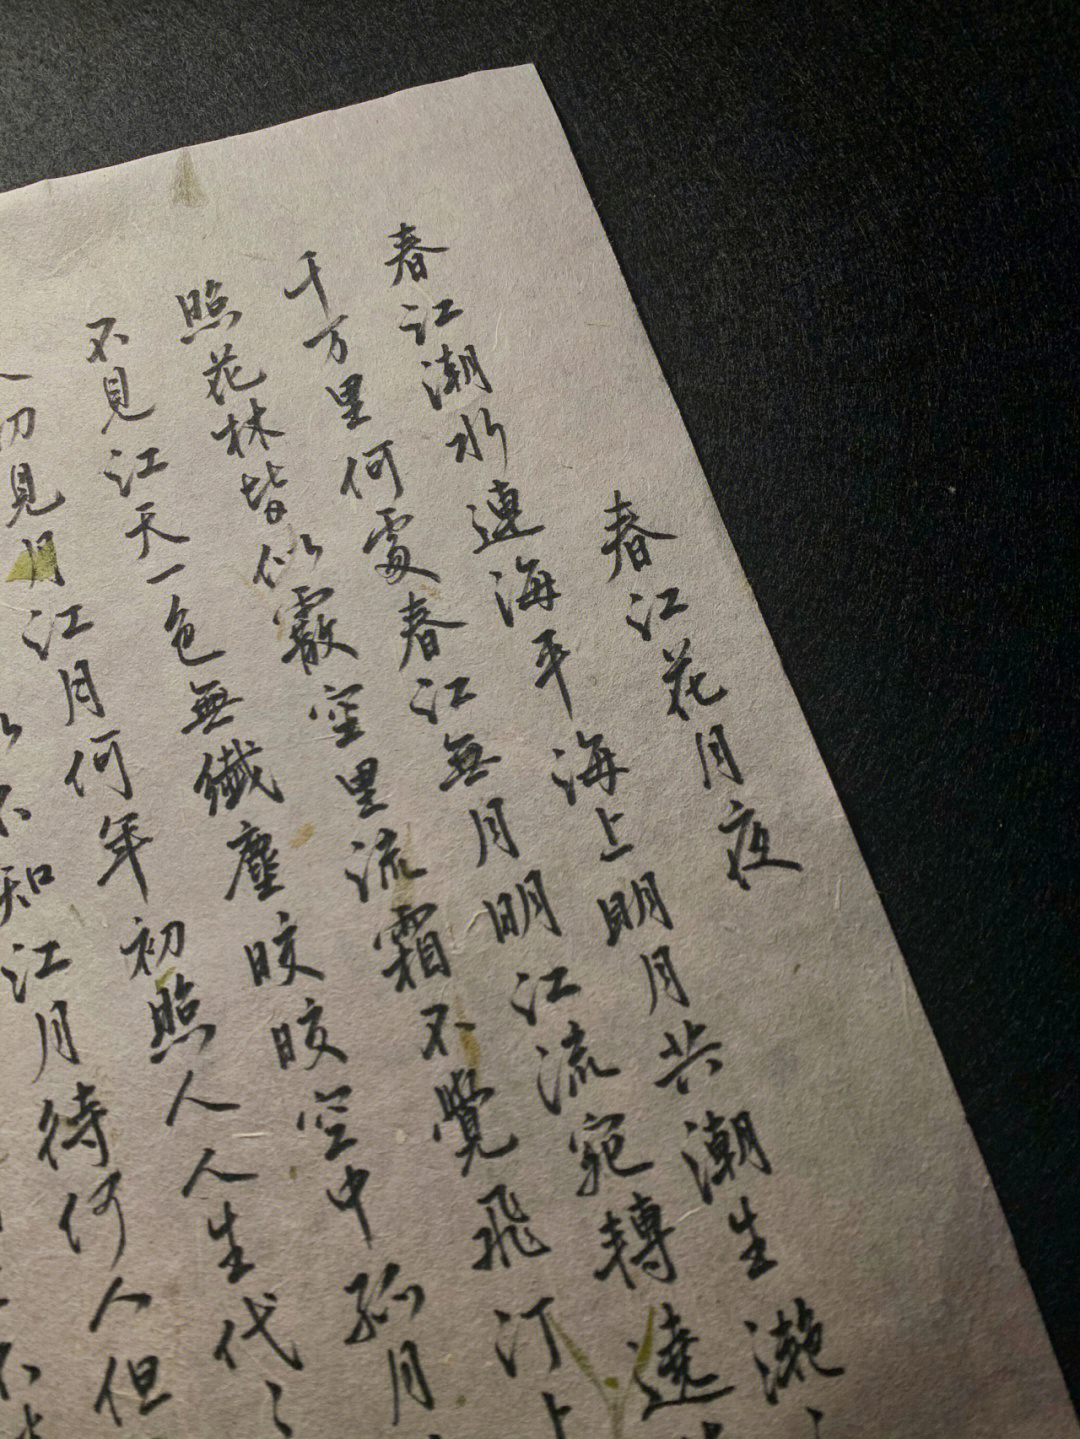 春江花月夜
春江潮水連海平海上明月共潮生灔
千万里何處春江無月明江流宛轉遶
照花林皆似霰空里流霜不覺飛汀上
不見江天一色無纖塵皎皎空中孤月
初見月江月何年初照人人生代〻
不知江月待何人但